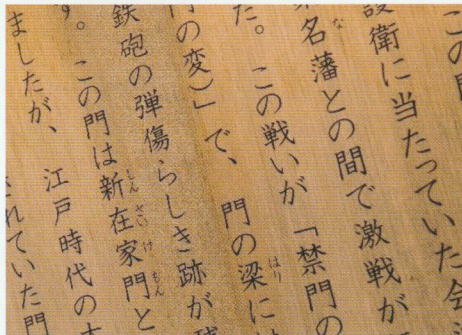 この門
護衛に当たっていた会
名藩との間で激戦が
た。この戦いが「禁門の
門の変）」で、門の梁に
鉄砲の弾傷らしき跡が残
す。この門は新在家門と
ましたが、江戸時代の
れていた門